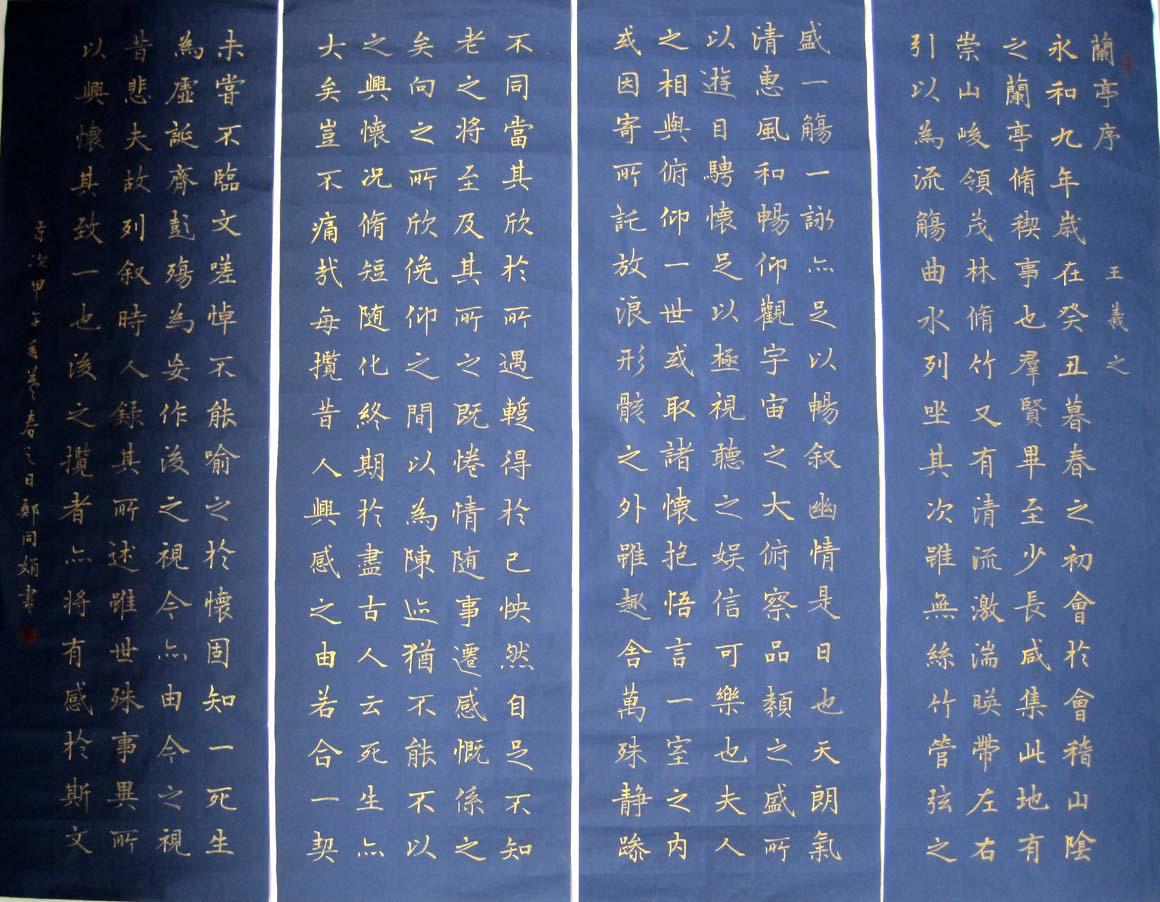 蘭亭序 王羲之
永和九年歲在癸丑暮春之初會於會稽山陰
之蘭亭脩稧事也羣賢畢至少長咸集此地有
崇山峻領茂林脩竹又有清流激湍暎帶左右
引以為流觴曲水列坐其次雖無絲竹管弦之
盛一觴一詠亦足以暢叙幽情是日也天朗氣
清惠風和暢仰觀宇宙之大俯察品類之盛所
以遊目騁懷足以極視聽之娛信可樂也夫人
之相與俯仰一世或取諸懷抱悟言一室之內
或因寄所託放浪形骸之外雖趣舍萬殊静躁
不同當其欣於所遇蹔得於己怏然自足不知
老之將至及其所之既惓情随事遷感慨係之
矣向之所欣俛仰之間以為陳迹猶不能不以
之興懷况脩短随化終期於盡古人云死生亦
大矣豈不痛哉每攬昔人興感之由若合一契
未嘗不臨文嗟悼不能喻之於懷固知一死生
為虛誕齊彭殤為妄作後之視今亦由今之視
昔悲夫故列叙時人錄其所述雖世殊事異所
以興懷其致一也後之攬者亦將有感於斯文
次甲午春之日鄭同娟書